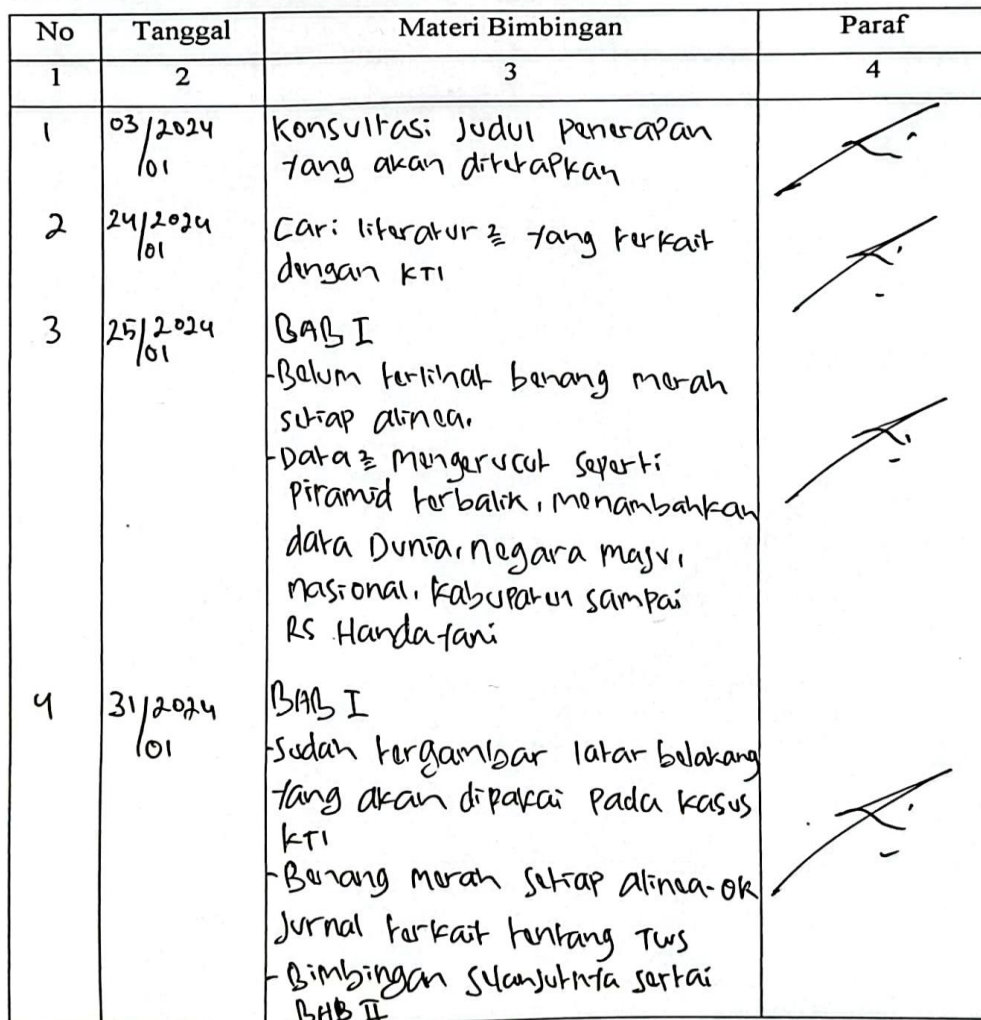 No Tanggal Materi Bimbingan Paraf
1 2 3 4
1 03/01/2024 Konsultasi Judul penerapan
yang akan diterapkan
2 24/01/2024 Cari literatur2 yang terkait
dengan KTI
3 25/01/2024 BAB I
-Belum terlihat benang merah
setiap alinea.
-Data2 mengerucut seperti
piramid terbalik, menambahkan
data Dunia, negara maju,
nasional, kabupaten sampai
RS Handayani
4 31/01/2024 BAB I
-Sudah tergambar latar belakang
yang akan dipakai pada kasus
KTI
-Benang merah setiap alinea-OK
Jurnal terkait tentang TWS
-Bimbingan selanjutnya sertai
BAB II